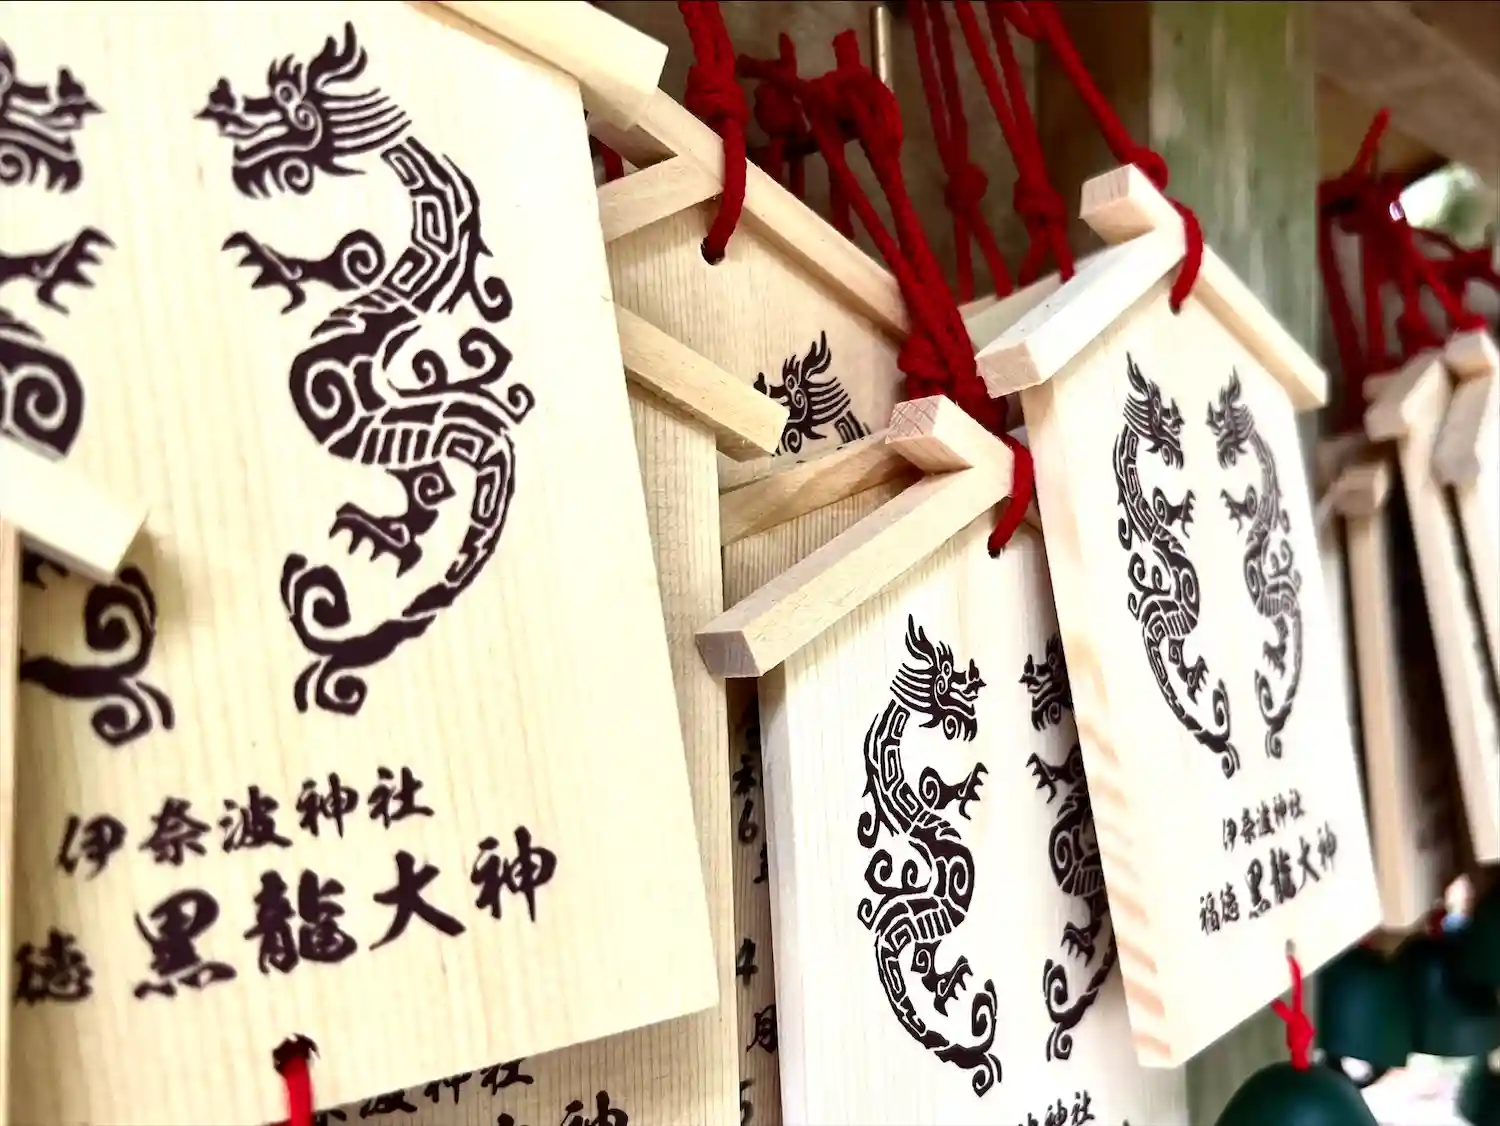 伊奈波神社
徳 黒龍大神
奈波神社
大神
6
4
月
神社
伊奈波神社
福徳 黒龍大神